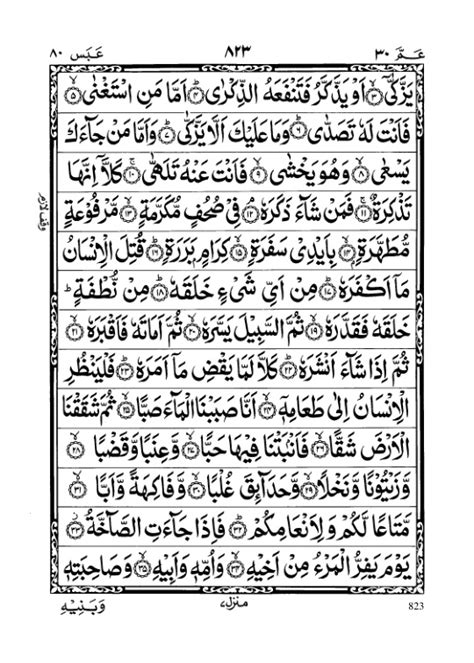 عَمَّ ٣٠ ٨٢٣ عَبَسَ ٨٠
يَزَّكّٰىۤ ۙ﴿۳﴾ اَوْ يَذَّكَّرُ فَتَنْفَعَهُ الذِّكْرٰى ؕ﴿۴﴾ اَمَّا مَنِ اسْتَغْنٰى ۙ﴿۵﴾
فَاَنْتَ لَهٗ تَصَدّٰى ؕ﴿۶﴾ وَمَا عَلَيْكَ اَلَّا يَزَّكّٰى ؕ﴿۷﴾ وَاَمَّا مَنْ جَآءَكَ
يَسْعٰى ۙ﴿۸﴾ وَهُوَ يَخْشٰى ۙ﴿۹﴾ فَاَنْتَ عَنْهُ تَلَهّٰى ۚ﴿۱۰﴾ كَلَّاۤ اِنَّهَا
تَذْكِرَةٌ ۚ﴿۱۱﴾ فَمَنْ شَآءَ ذَكَرَهٗ ۘ﴿۱۲﴾ فِىْ صُحُفٍ مُّكَرَّمَةٍ ۙ﴿۱۳﴾ مَّرْفُوْعَةٍ
مُّطَهَّرَةٍۭ ۙ﴿۱۴﴾ بِاَيْدِىْ سَفَرَةٍ ۙ﴿۱۵﴾ كِرَامٍۭ بَرَرَةٍ ؕ﴿۱۶﴾ قُتِلَ الْاِنْسَانُ
مَاۤ اَكْفَرَهٗ ؕ﴿۱۷﴾ مِنْ اَىِّ شَىْءٍ خَلَقَهٗ ؕ﴿۱۸﴾ مِنْ نُّطْفَةٍ ؕ
خَلَقَهٗ فَقَدَّرَهٗ ۙ﴿۱۹﴾ ثُمَّ السَّبِيْلَ يَسَّرَهٗ ۙ﴿۲۰﴾ ثُمَّ اَمَاتَهٗ فَاَقْبَرَهٗ ۙ﴿۲۱﴾
ثُمَّ اِذَا شَآءَ اَنْشَرَهٗ ؕ﴿۲۲﴾ كَلَّا لَمَّا يَقْضِ مَاۤ اَمَرَهٗ ؕ﴿۲۳﴾ فَلْيَنْظُرِ
الْاِنْسَانُ اِلٰى طَعَامِهٖۤ ۙ﴿۲۴﴾ اَنَّا صَبَبْنَا الْمَآءَ صَبًّا ۙ﴿۲۵﴾ ثُمَّ شَقَقْنَا
الْاَرْضَ شَقًّا ۙ﴿۲۶﴾ فَاَنْۢبَتْنَا فِيْهَا حَبًّا ۙ﴿۲۷﴾ وَّعِنَبًا وَّقَضْبًا ۙ﴿۲۸﴾
وَّزَيْتُوْنًا وَّنَخْلًا ۙ﴿۲۹﴾ وَّحَدَآئِقَ غُلْبًا ۙ﴿۳۰﴾ وَّفَاكِهَةً وَّاَبًّا ۙ﴿۳۱﴾
مَّتَاعًا لَّكُمْ وَلِاَنْعَامِكُمْ ؕ﴿۳۲﴾ فَاِذَا جَآءَتِ الصَّآخَّةُ ۫﴿۳۳﴾
يَوْمَ يَفِرُّ الْمَرْءُ مِنْ اَخِيْهِ ۙ﴿۳۴﴾ وَاُمِّهٖ وَاَبِيْهِ ۙ﴿۳۵﴾ وَصَاحِبَتِهٖ
وقف لازم
823 منزل ٧ وَبَنِيْهِ